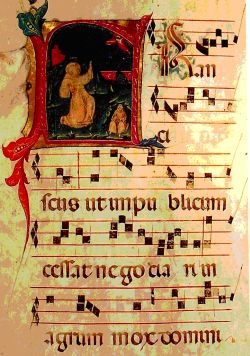 FRan
ci
scus ut in pu blicum
cessat ne gocia ri in
agrum mox domini